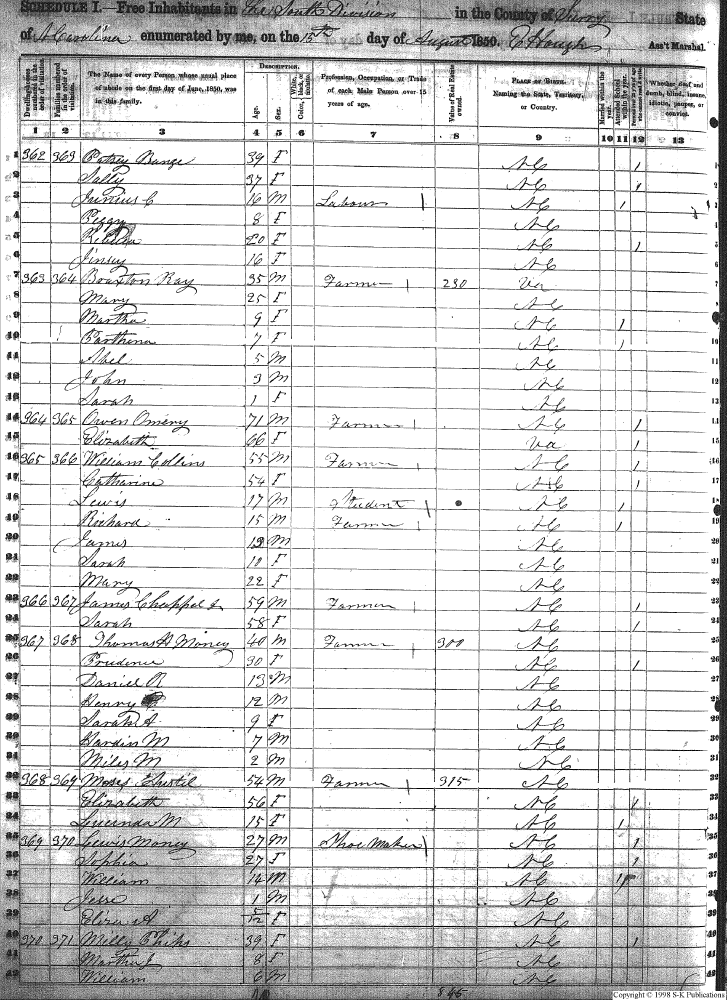 SCHEDULE I.—Free Inhabitants in The South Division in the County of Surry State
of N Carolina enumerated by me, on the 15th day of August 1850. Ass't Marshal.
Dwelling-houses numbered in the order of visitation.
Families numbered in the order of visitation.
The Name of every Person whose usual place of abode on the first day of June, 1850, was in this family.
DESCRIPTION.
Age.
Sex.
White, black, or mulatto.
Color,
Profession, Occupation, or Trade of each Male Person over 15 years of age.
Value of Real Estate owned.
PLACE OF BIRTH. Naming the State, Territory, or Country.
Married within the year.
Attended School within the year.
Whether deaf and dumb, blind, insane, idiotic, pauper, or convict.
1 2 3 4 5 6 7 8 9 10 11 12 13
1 362 363 39 F NC 1
2 Sally 37 F NC 1
3 Junius C 16 M Labour NC 1
4 Peggy 8 F NC
5 20 F NC 1
6 Jinsey 16 F NC
7 363 364 Braxton Ray 35 M Farmer 230 Va
8 Mary 25 F NC
9 Martha 9 F NC 1
10 Parthena 7 F NC 1
11 Abel 5 M NC
12 John 3 M NC
13 Sarah 1 F NC
14 364 365 Owen 71 M Farmer NC 1
15 Elizabeth 66 F Va 1
16 365 366 William Collins 55 M Farmer NC 1
17 Catharine 54 F NC 1
18 Lewis 17 M Student NC 1
19 Richard 15 M Farmer NC 1
20 James 13 M NC
21 Sarah 10 F NC
22 Mary 22 F NC
23 366 367 James 59 M Farmer NC 1
24 Sarah 58 F NC 1
25 367 368 Thomas H Money 40 M Farmer 300 NC
26 Prudence 30 F NC 1
27 Daniel R 13 M NC
28 Henry 12 M NC
29 Sarah A 9 F NC
30 Hardin M 7 M NC
31 Miles M 2 M NC
32 368 369 Moses 54 M Farmer 315 NC
33 Elizabeth 56 F NC 1
34 Lucinda M 15 F NC 1
35 369 370 Lewis Money 27 M Shoe Maker NC 1
36 Sophia 27 F NC 1
37 William 14 M NC 1
38 Jesse 1 M NC
39 Eliza A 5/12 F NC
40 370 371 Milly Phips 39 F NC 1
41 Martha J 8 F NC
42 William 6 M NC
Copyright © 1998 S-K Publications